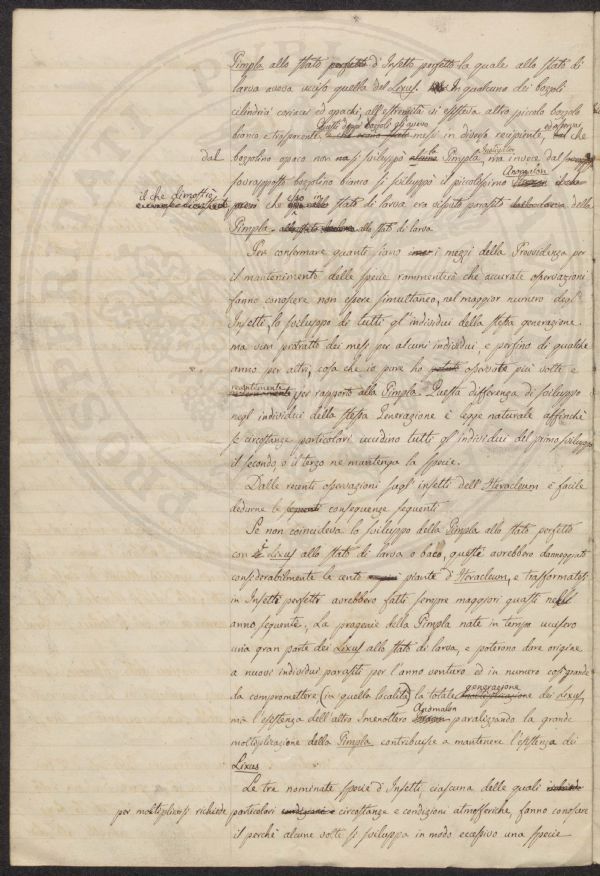 Pimpla allo stato perfetto d'Insetto perfetto la quale allo stato di
larva aveva ucciso quella del Lixus. In qualcuno dei bozzoli
cilindrici coriacei ed opachi, all'estremità vi esisteva altro piccolo bozzolo
bianco, e trasparente messi in diverso recipiente, che
dal bozzolino opaco non si sviluppò la Pimpla, ma invece dal
sovrapposto bozzolino bianco si sviluppò il piccolissimo Anomalon
il che dimostra
che esso in stato di larva era vissuto parassita della
Pimpla allo stato di larva.
Per confermare quanti siano i mezzi della Provvidenza per
il mantenimento delle specie rammenterò che accurate osservazioni
fanno conoscere non essere simultaneo, nel maggior numero degl'
Insetti, lo sviluppo di tutti gl'individui della stessa generazione.
ma vien protratto dei mesi per alcuni individui, e perfino di qualche
anno per altri, cosa che io pure ho potuto osservato più volte e
recentemente per rapporto alla Pimpla. Questa differenza di sviluppo
negl'individui della stessa Generazione è legge naturale affinchè
se circostanze particolari uccidono tutti gl'individui del primo sviluppo
il secondo, o il terzo ne mantenga la specie.
Dalle recenti osservazioni sugl'insetti dell'Heracleum è facile
dedurne le seguenti conseguenze seguenti
Se non coincideva lo sviluppo della Pimpla allo stato perfetto
con Lixus allo stato di larva o baco, questi avrebbero danneggiato
considerabilmente le cento piante d'Heracleum, e trasformatosi
in Insetti perfetti avrebbero fatti sempre maggiori guasti nell'
anno seguente. La progenie della Pimpla nata in tempo uccisero
una gran parte dei Lixus allo stato di larva, e poterono dare origine
a nuovi individui parassiti per l'anno venturo ed in numero così grande
da compromettere (in quella località) la totale generazione dei Lixus,
ma l'esistenza dell'altro Imenottero Anomalon paralizzando la grande
moltiplicazione della Pimpla contribuisce a mantenere l'esistenza dei
Lixus.
Le tre nominate specie d'Insetti, ciascuna delle quali
per moltiplicarsi richiede particolari circostanze e condizioni atmosferiche, fanno conoscere
il perchè alcune volte si sviluppa in modo eccessivo una specie